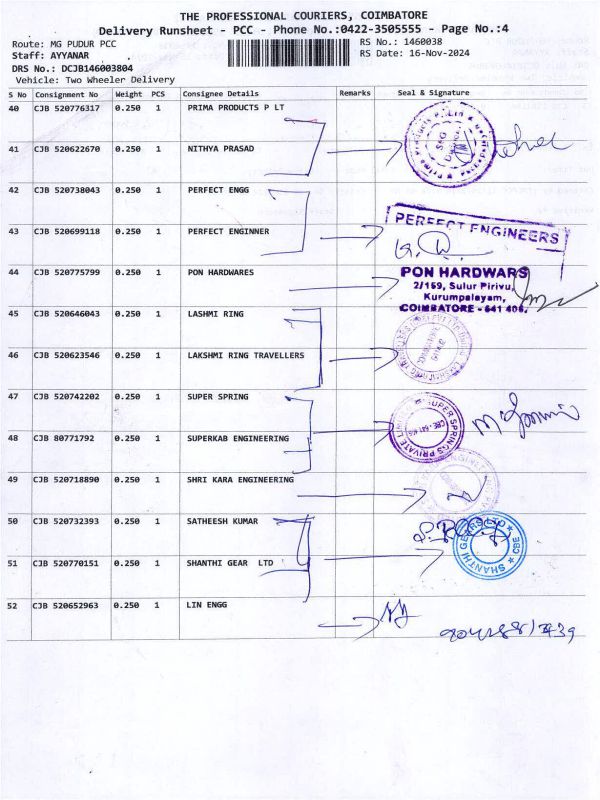 THE PROFESSIONAL COURIERS, COIMBATORE
Delivery Runsheet - PCC - Phone No.:0422-3505555 - Page No.:4
Route: MG PUDUR PCC RS No.: 1460038
Staff: AYYANAR RS Date: 16-Nov-2024
DRS No.: DCJB146003804
Vehicle: Two Wheeler Delivery
S No Consignment No Weight PCS Consignee Details Remarks Seal & Signature
40 CJB 520776317 0.250 1 PRIMA PRODUCTS P LT
41 CJB 520622670 0.250 1 NITHYA PRASAD
42 CJB 520738043 0.250 1 PERFECT ENGG
PERFECT ENGINEERS
43 CJB 520699118 0.250 1 PERFECT ENGINNER
44 CJB 520775799 0.250 1 PON HARDWARES
PON HARDWARS
2/159, Sulur Pirivu,
Kurumpalayam,
COIMBATORE - 641 406.
45 CJB 520646043 0.250 1 LASHMI RING
46 CJB 520623546 0.250 1 LAKSHMI RING TRAVELLERS
47 CJB 520742202 0.250 1 SUPER SPRING
SUPER SPRINGS PRIVATE LIMITED
48 CJB 80771792 0.250 1 SUPERKAB ENGINEERING
49 CJB 520718890 0.250 1 SHRI KARA ENGINEERING
50 CJB 520732393 0.250 1 SATHEESH KUMAR
SHANTHI GEARS LTD
CBE
51 CJB 520770151 0.250 1 SHANTHI GEAR LTD
52 CJB 520652963 0.250 1 LIN ENGG